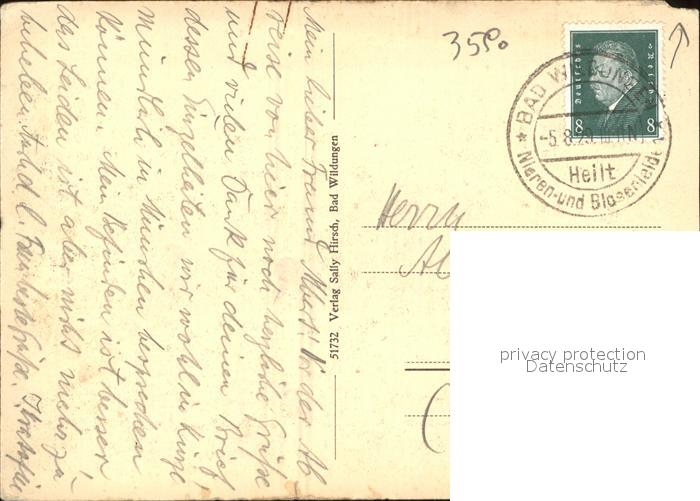 Mein lieber Freund Albert! Vor der Ab
reise von hier noch herzliche Grüße
und vielen Dank für deinen Brief,
dessen Einzelheiten wir wohl in Kürze
mündlich in München besprechen
können. Mein Befinden ist besser
das Leiden ist aber nicht mehr zu
beheben. Familiengrüße.
51732 Verlag Sally Hirsch, Bad Wildungen
35%
Deutsches Reich
8 8
* BAD WILDUNGEN *
-5.8.29.
Heilt
Nieren- und Blasenleiden
Herrn
privacy protection
Datenschutz